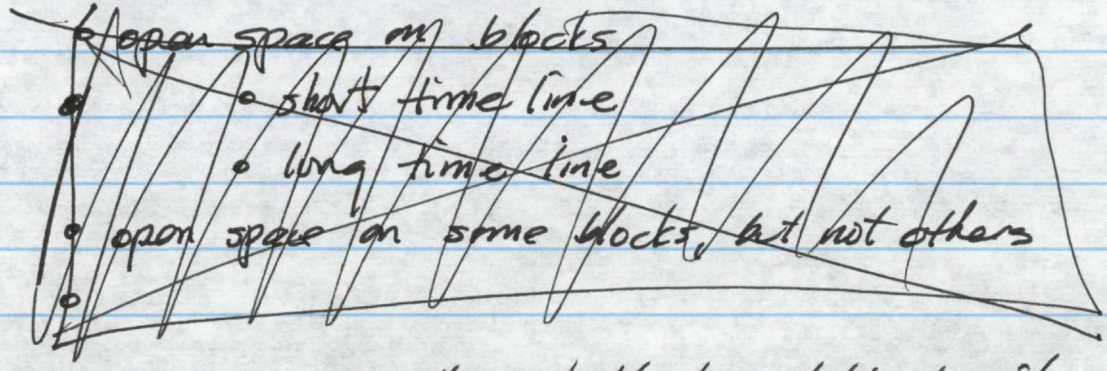 open space on blocks
short time line
long time line
open space on some blocks, but not others